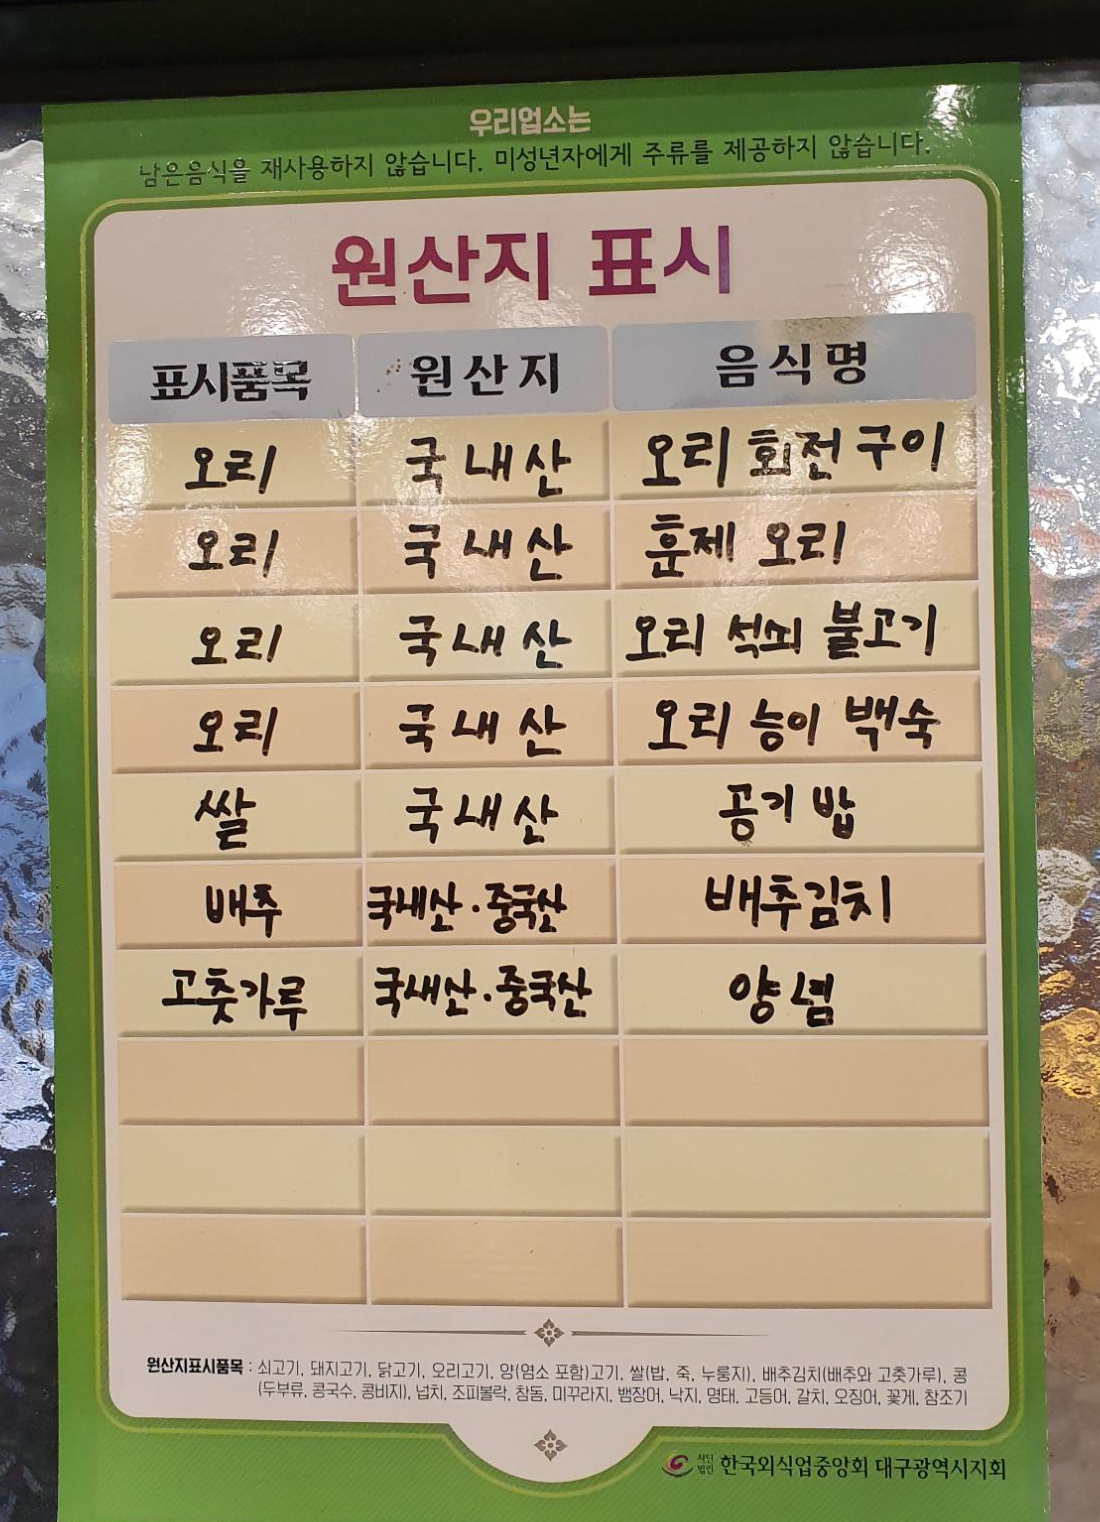 우리업소는
남은음식을 재사용하지 않습니다. 미성년자에게 주류를 제공하지 않습니다.
원산지 표시
표시품목 원산지 음식명
오리 국내산 오리 회전구이
오리 국내산 훈제 오리
오리 국내산 오리 석쇠 불고기
오리 국내산 오리 능이 백숙
쌀 국내산 공기밥
배추 국내산·중국산 배추김치
고춧가루 국내산·중국산 양념
원산지표시품목 : 쇠고기, 돼지고기, 닭고기, 오리고기, 양(염소 포함)고기, 쌀(밥, 죽, 누룽지), 배추김치(배추와 고춧가루), 콩
(두부류, 콩국수, 콩비지), 넙치, 조피볼락, 참돔, 미꾸라지, 뱀장어, 낙지, 명태, 고등어, 갈치, 오징어, 꽃게, 참조기
사단법인 한국외식업중앙회 대구광역시지회